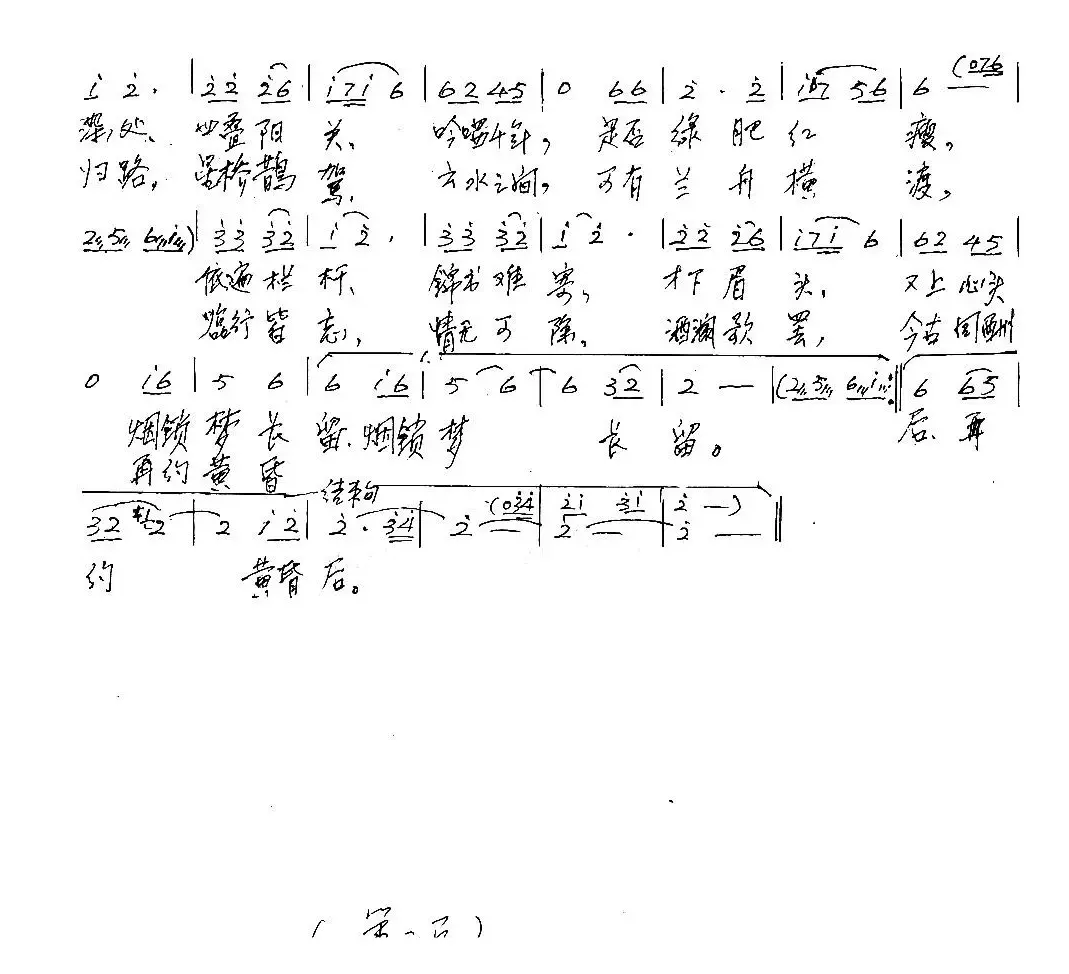 i 2̇ · | 2̇2̇ 2̇6 | i7i 6 | 62 45 | 0 66 | 2̇ · 2̇ | i67 56 | 6 (076 |
深处、四叠阳关、吟唱千年,是否绿肥红瘦,
归路,星桥鹊驾,云水之间,可有兰舟横渡,
2 5 6 i) | 3̇3̇ 3̇2̇ | i 2̇ · | 3̇3̇ 3̇2̇ | i 2̇ · | 2̇2̇ 2̇6 | i7i 6 | 62 45 |
依遍栏杆、锦书难寄,才下眉头,又上心头
临行皆忘,情无可除,酒阑歌罢,今古同酬
1.
0 i6 | 5 6 | 6 i6 | 5 6 | 6 32 | 2 — | (2 5 6 i :|| 6 65 |
烟锁梦长留、烟锁梦长留。后、再
再约黄昏
结束句
(03̇4̇ | 2̇i 3̇i | 2̇ —)
32 #12 | 2 i2̇ | 2̇ · 3̇4̇ | 2̇ — | 2̇ — | 2̇ — ||
约 黄昏后。